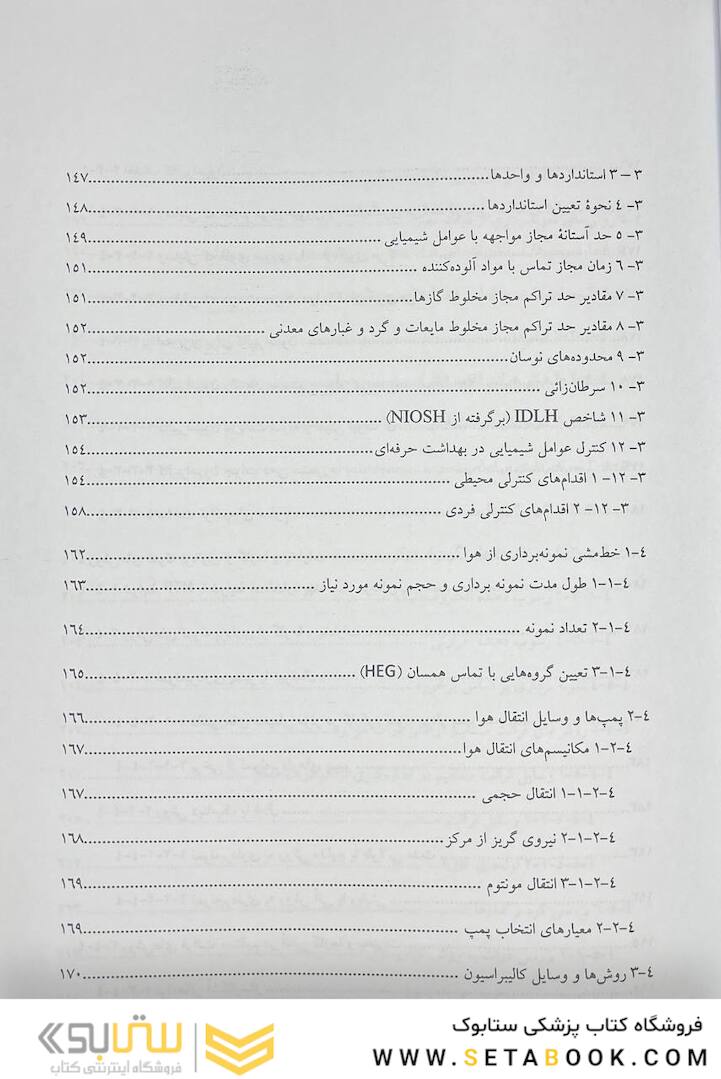 ۳–۳ استانداردها و واحدها......۱٤۷
۳- ٤ نحوۀ تعیین استانداردها......۱٤۸
۳- ۵ حد آستانۀ مجاز مواجهه با عوامل شیمیایی......۱٤۹
۳- ٦ زمان مجاز تماس با مواد آلوده‌کننده......۱۵۱
۳- ۷ مقادیر حد تراکم مجاز مخلوط گازها......۱۵۱
۳- ۸ مقادیر حد تراکم مجاز مخلوط مایعات و گرد و غبارهای معدنی......۱۵۲
۳- ۹ محدوده‌های نوسان......۱۵۲
۳- ۱۰ سرطان‌زائی......۱۵۲
۳- ۱۱ شاخص IDLH (برگرفته از NIOSH)......۱۵۳
۳- ۱۲ کنترل عوامل شیمیایی در بهداشت حرفه‌ای......۱۵٤
۳- ۱۲- ۱ اقدام‌های کنترلی محیطی......۱۵٤
۳- ۱۲- ۲ اقدام‌های کنترلی فردی......۱۵۸
٤-۱ خط‌مشی نمونه‌برداری از هوا......۱٦۲
٤-۱-۱ طول مدت نمونه برداری و حجم نمونه مورد نیاز......۱٦۳
٤-۱-۲ تعداد نمونه......۱٦٤
٤-۱-۳ تعیین گروه‌هایی با تماس همسان (HEG)......۱٦۵
٤-۲ پمپ‌ها و وسایل انتقال هوا......۱٦٦
٤-۲-۱ مکانیسم‌های انتقال هوا......۱٦۷
٤-۲-۱-۱ انتقال حجمی......۱٦۷
٤-۲-۱-۲ نیروی گریز از مرکز......۱٦۸
٤-۲-۱-۳ انتقال مونتوم......۱٦۹
٤-۲-۲ معیارهای انتخاب پمپ......۱٦۹
٤-۳ روش‌ها و وسایل کالیبراسیون......۱۷۰
فروشگاه کتاب پزشکی ستابوک
WWW.SETABOOK.COM
ستابوک
فروشگاه اینترنتی کتاب